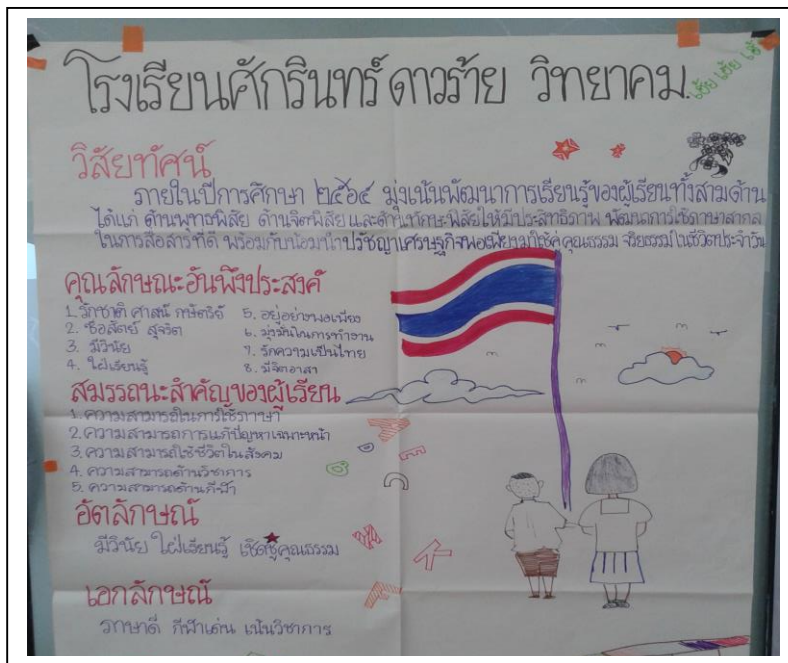 โรงเรียนศักรินทร์ ดาวร้าย วิทยาคม.
เฮ้ย เฮ้ย เฮ้
วิสัยทัศน์
ภายในปีการศึกษา ๒๕๖๔ มุ่งเน้นพัฒนาการเรียนรู้ของผู้เรียนทั้งสามด้าน
ได้แก่ ด้านพุทธพิสัย ด้านจิตพิสัย และด้านทักษะพิสัยให้มีประสิทธิภาพ พัฒนาการใช้ภาษาสากล
ในการสื่อสารที่ดี พร้อมกับน้อมนำปรัชญาเศรษฐกิจพอเพียงมาใช้คู่คุณธรรม จริยธรรมในชีวิตประจำวัน
คุณลักษณะอันพึงประสงค์
1. รักชาติ ศาสน์ กษัตริย์
2. ซื่อสัตย์ สุจริต
3. มีวินัย
4. ใฝ่เรียนรู้
5. อยู่อย่างพอเพียง
6. มุ่งมั่นในการทำงาน
7. รักความเป็นไทย
8. มีจิตอาสา
สมรรถนะสำคัญของผู้เรียน
1. ความสามารถในการใช้ภาษา
2. ความสามารถการแก้ปัญหาเฉพาะหน้า
3. ความสามารถใช้ชีวิตในสังคม
4. ความสามารถด้านวิชาการ
5. ความสามารถด้านกีฬา
อัตลักษณ์
มีวินัย ใฝ่เรียนรู้ เชิดชูคุณธรรม
เอกลักษณ์
ภาษาดี กีฬาเด่น เน้นวิชาการ